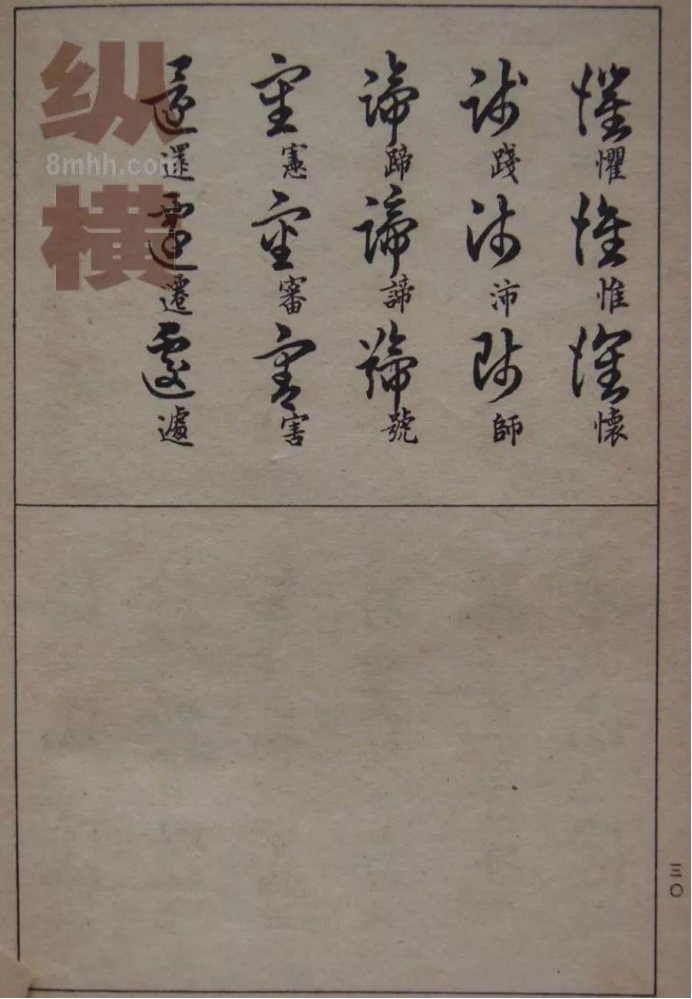 懼
惟
懷
踐
沛
師
蹄
諦
號
憲
審
害
還
遷
遽
三〇
纵横
8mhh.com